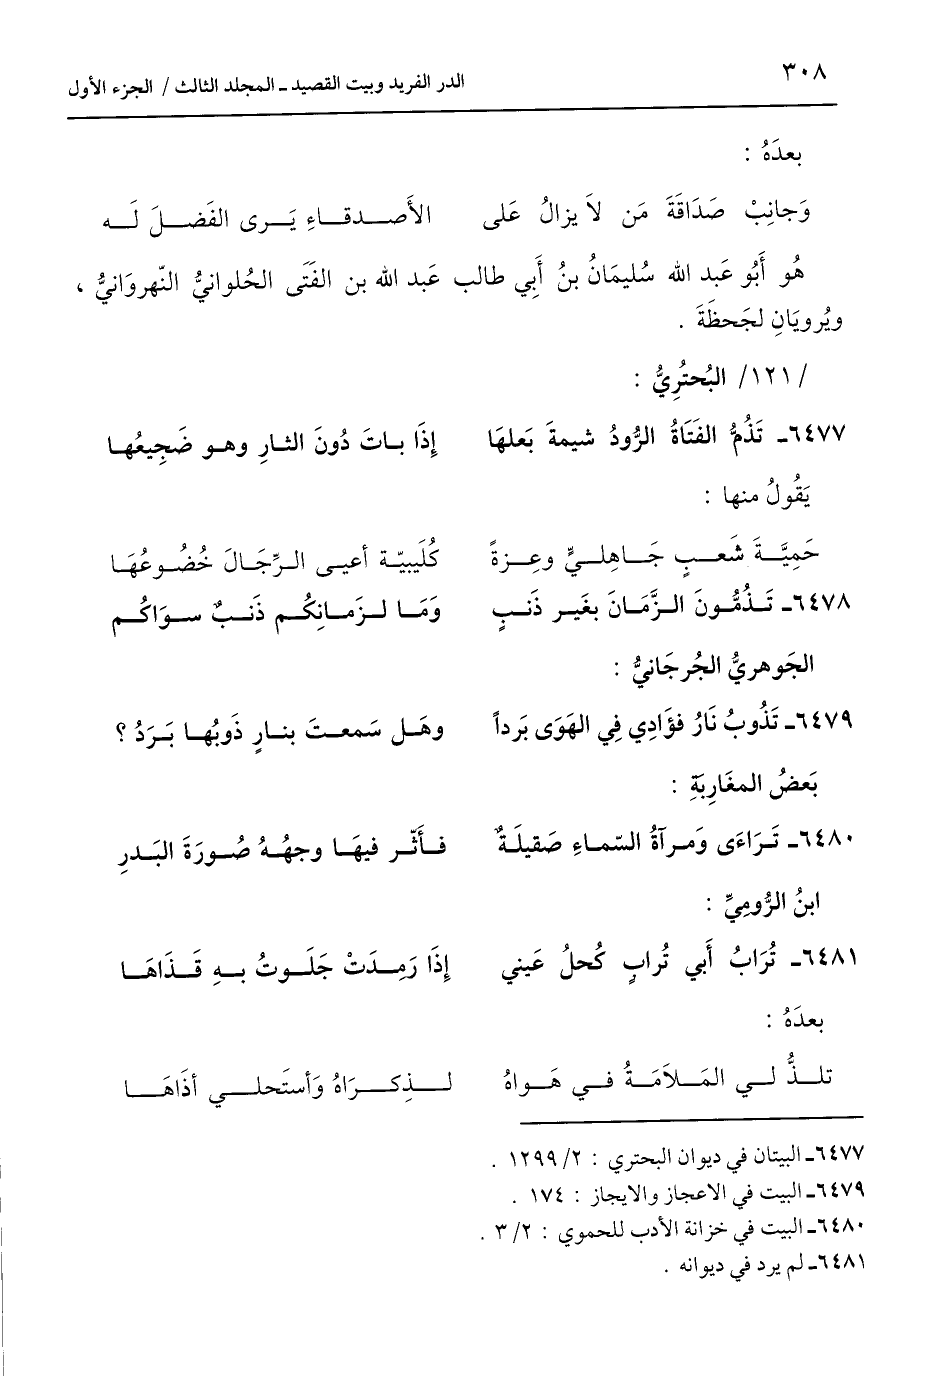 ٣٠٨
الدر الفريد وبيت القصيد ـ المجلد الثالث / الجزء الأول
بعدَهُ :
وَجانِبْ صَدَاقَةَ مَن لاَ يزالُ عَلى الأَصـدقـاءِ يَـرى الفَضـلَ لَـه
هُو أَبُو عَبد الله سُليمَانُ بنُ أَبِي طالب عَبد الله بن الفَتَى الحُلوانيُّ النّهروَانيُّ ،
ويُرويَانِ لجَحظَةَ .
/١٢١/ البُحتُرِيُّ :
٦٤٧٧ـ تَذُمُّ الفَتَاةُ الرُّودُ شيمةَ بَعلهَا إذَا بـاتَ دُونَ الثـارِ وهـو ضَجِيعُهـا
يَقُولُ منها :
حَمِيَّـةَ شَعـبٍ جَـاهلـيٍّ وعِـزةً كُلَيبيّـة أعيـى الـرِّجَـالَ خُضُـوعُهَـا
٦٤٧٨ـ تَـذمُّـونَ الـزَّمَـانَ بغَيـر ذَنـبٍ وَمَـا لـزمَـانِكُـم ذَنـبٌ سـوَاكُـم
الجَوهريُّ الجُرجَانيُّ :
٦٤٧٩ـ تَذُوبُ نَارُ فؤَادِي فِي الهَوَى بَرداً وهَـل سَمعـتَ بنـارٍ ذَوبُهـا بَـرَدُ ؟
بَعضُ المغَارِبَةِ :
٦٤٨٠ـ تَـرَاءَى وَمـرآةُ السّماءِ صَقيلَـةٌ فـأثّـر فيهَـا وجهُـهُ صُـورَةَ البَـدرِ
ابنُ الرُّومِيِّ :
٦٤٨١ـ تُرَابُ أَبي تُرابٍ كُحلُ عَيني إذَا رَمِـدَتْ جَلَـوتُ بـهِ قَـذَاهَـا
بعدَهُ :
تلـذُّ لـي المَـلاَمَـةُ فـي هَـواهُ لـذِكـرَاهُ وَأستَحلـي أذَاهَـا
٦٤٧٧ـ البيتان في ديوان البحتري : ١٢٩٩/٢ .
٦٤٧٩ـ البيت في الاعجاز والايجاز : ١٧٤ .
٦٤٨٠ـ البيت في خزانة الأدب للحموي : ٣/٢ .
٦٤٨١ـ لم يرد في ديوانه .